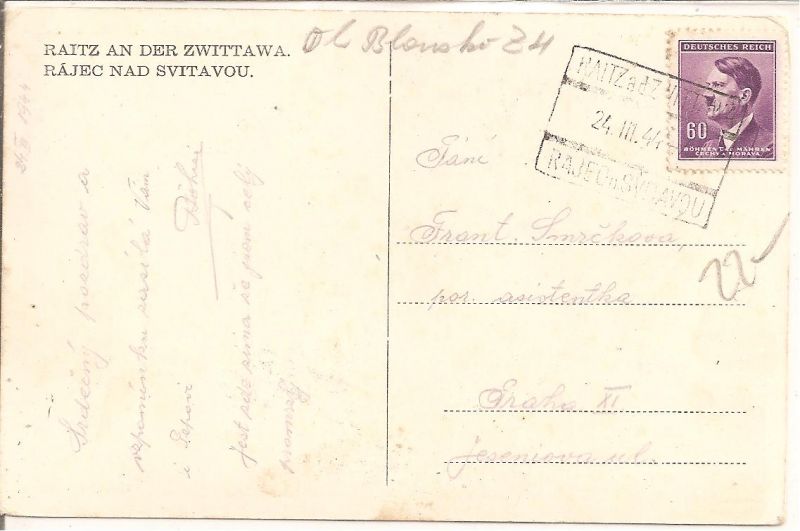 RAITZ AN DER ZWITTAWA.
RÁJEC NAD SVITAVOU.
Ol Blansko Z4
24 III 1944
Srdečný pozdrav a
vzpomínku zasílá Vám
i Pepovi
Jest zde zima že jsem celý
promrzlý
RAITZ a.d. ZWITTAWA
24. III. 44
RÁJEC n. SVITAVOU
DEUTSCHES REICH
60
BÖHMEN U. MÄHREN
ČECHY A MORAVA
22
Paní
Frant. Smrčková,
por. asistentka
Praha XI
Jeseniova ul.